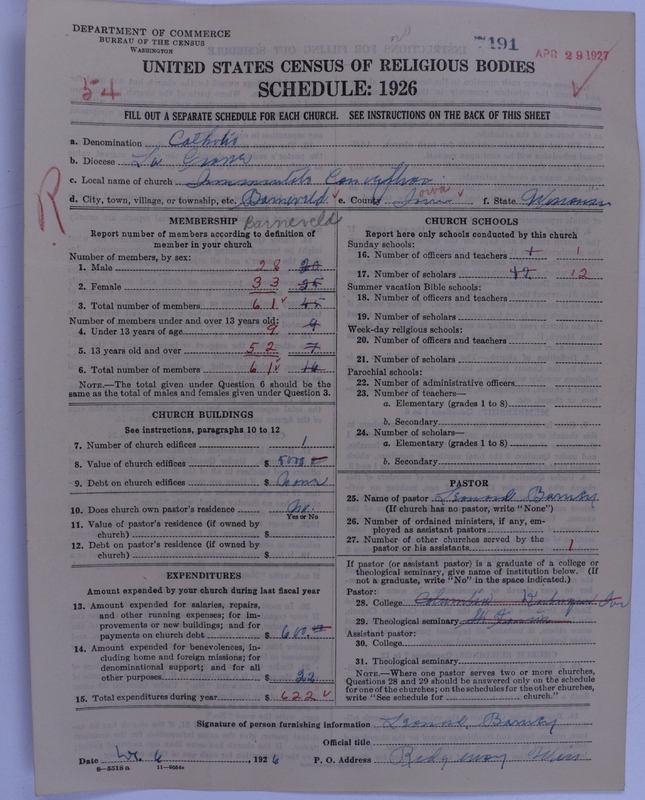 DEPARTMENT OF COMMERCE
BUREAU OF THE CENSUS
WASHINGTON
191
APR 29 1927
UNITED STATES CENSUS OF RELIGIOUS BODIES
SCHEDULE: 1926
54
FILL OUT A SEPARATE SCHEDULE FOR EACH CHURCH. SEE INSTRUCTIONS ON THE BACK OF THIS SHEET
a. Denomination Catholic
b. Diocese La Crosse
c. Local name of church Immaculate Conception
d. City, town, village, or township, etc. Barneveld e. County Iowa f. State Wisconsin
R
Barneveld
MEMBERSHIP
Report number of members according to definition of member in your church
Number of members, by sex:
1. Male 28 20
2. Female 33 25
3. Total number of members 61 45
Number of members under and over 13 years old:
4. Under 13 years of age 9 9
5. 13 years old and over 52 7
6. Total number of members 61 16
NOTE.—The total given under Question 6 should be the
same as the total of males and females given under Question 3.
CHURCH BUILDINGS
See instructions, paragraphs 10 to 12
7. Number of church edifices 1
8. Value of church edifices $ 5000
9. Debt on church edifices $ none
10. Does church own pastor's residence No.
Yes or No
11. Value of pastor's residence (if owned by
church) $
12. Debt on pastor's residence (if owned by
church) $
EXPENDITURES
Amount expended by your church during last fiscal year
13. Amount expended for salaries, repairs,
and other running expenses; for im-
provements or new buildings; and for
payments on church debt $ 600.
14. Amount expended for benevolences, in-
cluding home and foreign missions; for
denominational support; and for all
other purposes $ 22
15. Total expenditures during year $ 622
CHURCH SCHOOLS
Report here only schools conducted by this church
Sunday schools:
16. Number of officers and teachers 1 1
17. Number of scholars 12 12
Summer vacation Bible schools:
18. Number of officers and teachers
19. Number of scholars
Week-day religious schools:
20. Number of officers and teachers
21. Number of scholars
Parochial schools:
22. Number of administrative officers
23. Number of teachers—
a. Elementary (grades 1 to 8)
b. Secondary
24. Number of scholars—
a. Elementary (grades 1 to 8)
b. Secondary
PASTOR
25. Name of pastor Leonard Barney
(If church has no pastor, write "None")
26. Number of ordained ministers, if any, em-
ployed as assistant pastors
27. Number of other churches served by the
pastor or his assistants 1
If pastor (or assistant pastor) is a graduate of a college or
theological seminary, give name of institution below. (If
not a graduate, write "No" in the space indicated.)
Pastor:
28. College Columbia Dubuque Ia
29. Theological seminary St Francis
Assistant pastor:
30. College
31. Theological seminary
NOTE.—Where one pastor serves two or more churches,
Questions 28 and 29 should be answered only on the schedule
for one of the churches; on the schedules for the other churches,
write "See schedule for church."
Signature of person furnishing information Leonard Barney
Official title
Date 6, 1926 P. O. Address Ridgeway Wis
8—5518a 11—9554